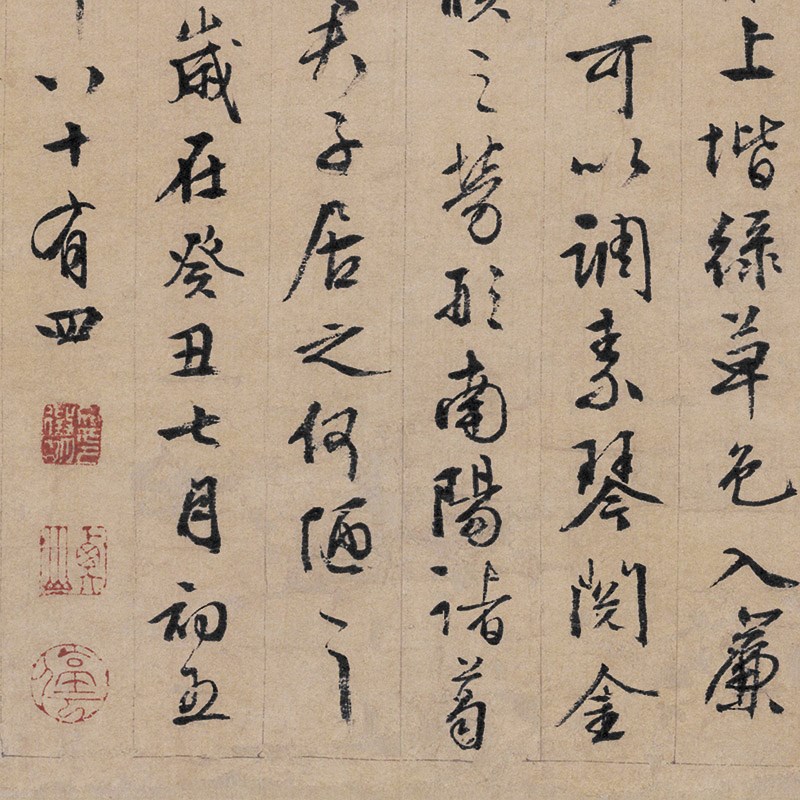 上堦綠草色入簾
可以調素琴閱金
之勞形南陽諸葛
子居之何陋
歲在癸丑七月初
八十有四
衡山
停雲